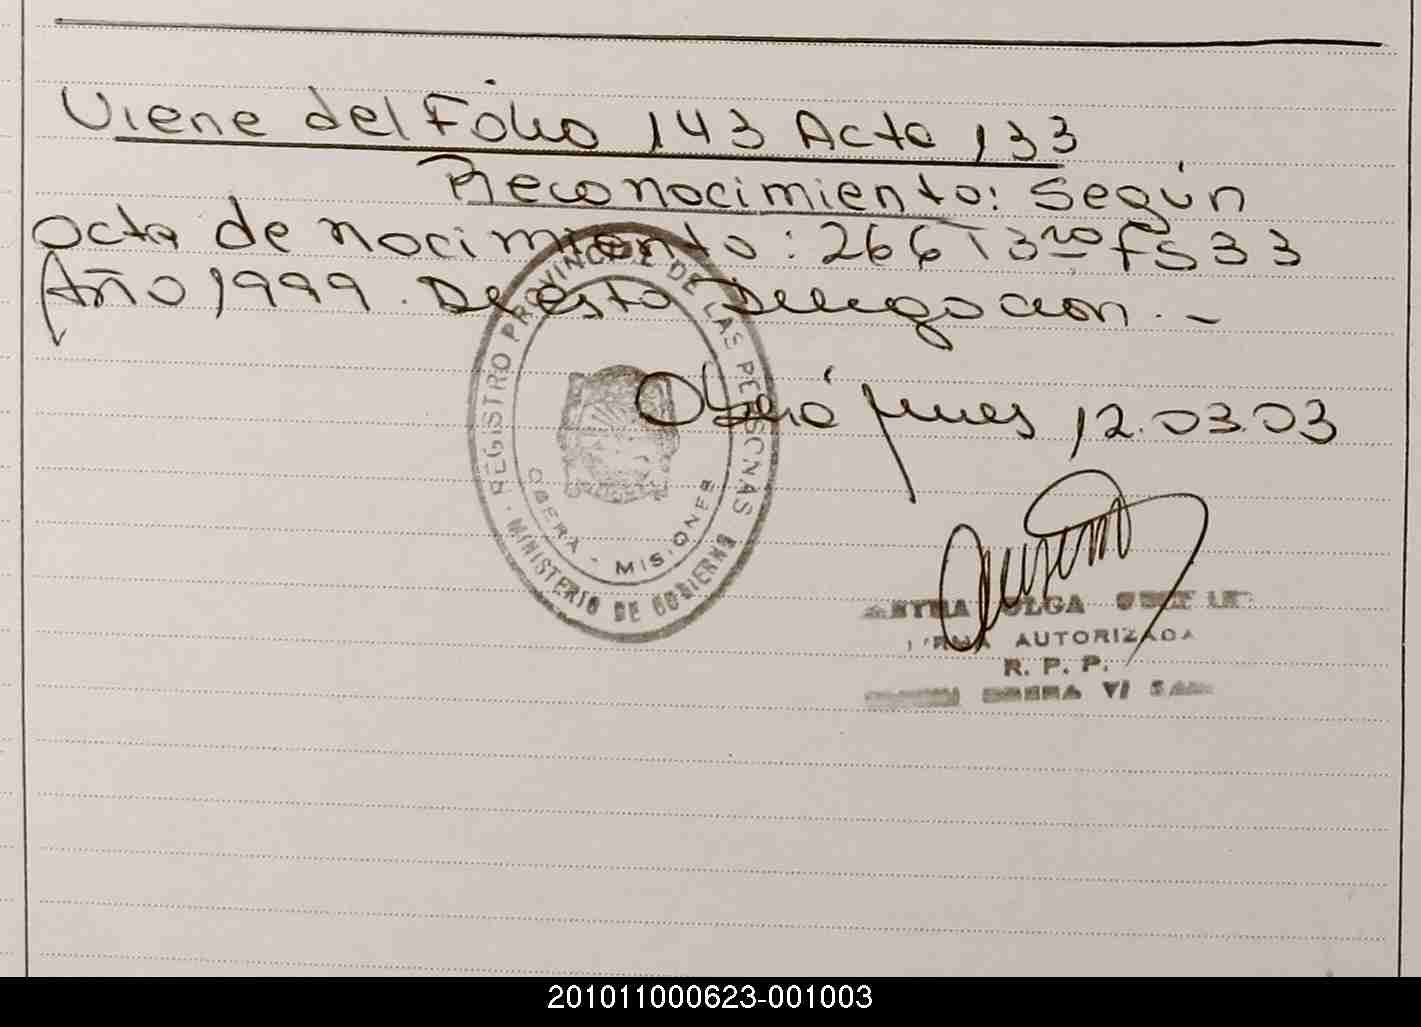 Viene del Folio 143 Acta 133
Reconocimiento: Según
acta de nacimiento: 266 T3ro Fs 33
Año 1999. De esta Delegación.-
Oberá Mnes 12.03.03
REGISTRO PROVINCIAL DE LAS PERSONAS
MINISTERIO DE GOBIERNO
OBERA - MISIONES
OLGA
AUTORIZADA
R. P. P.
OBERA
201011000623-001003